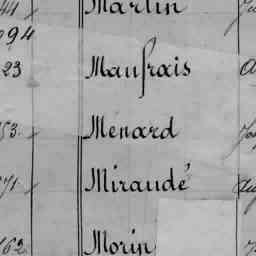 Martin
094
23 Maufrais
53. Ménard
71. Miraudé
162 Morin